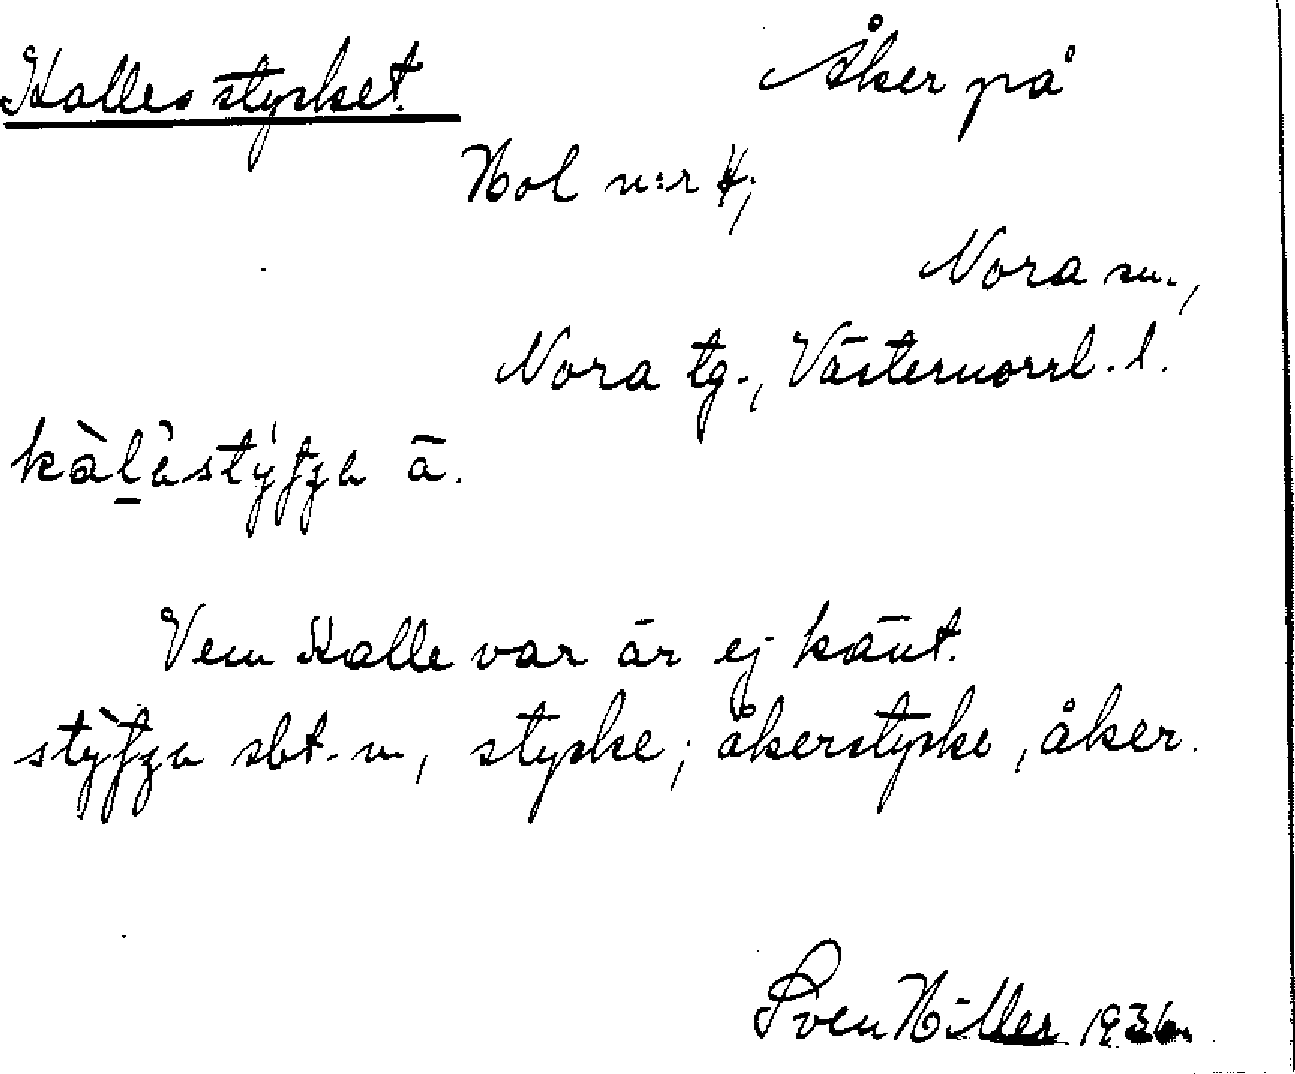 Kalles stycket. Åker på
Hol n:r 4;
Nora sn.,
Nora tg., Västernorrl. l.
Vem Kalle var är ej känt.
sbt. n, stycke; åkerstycke, åker.
Sven Hiller 1936.